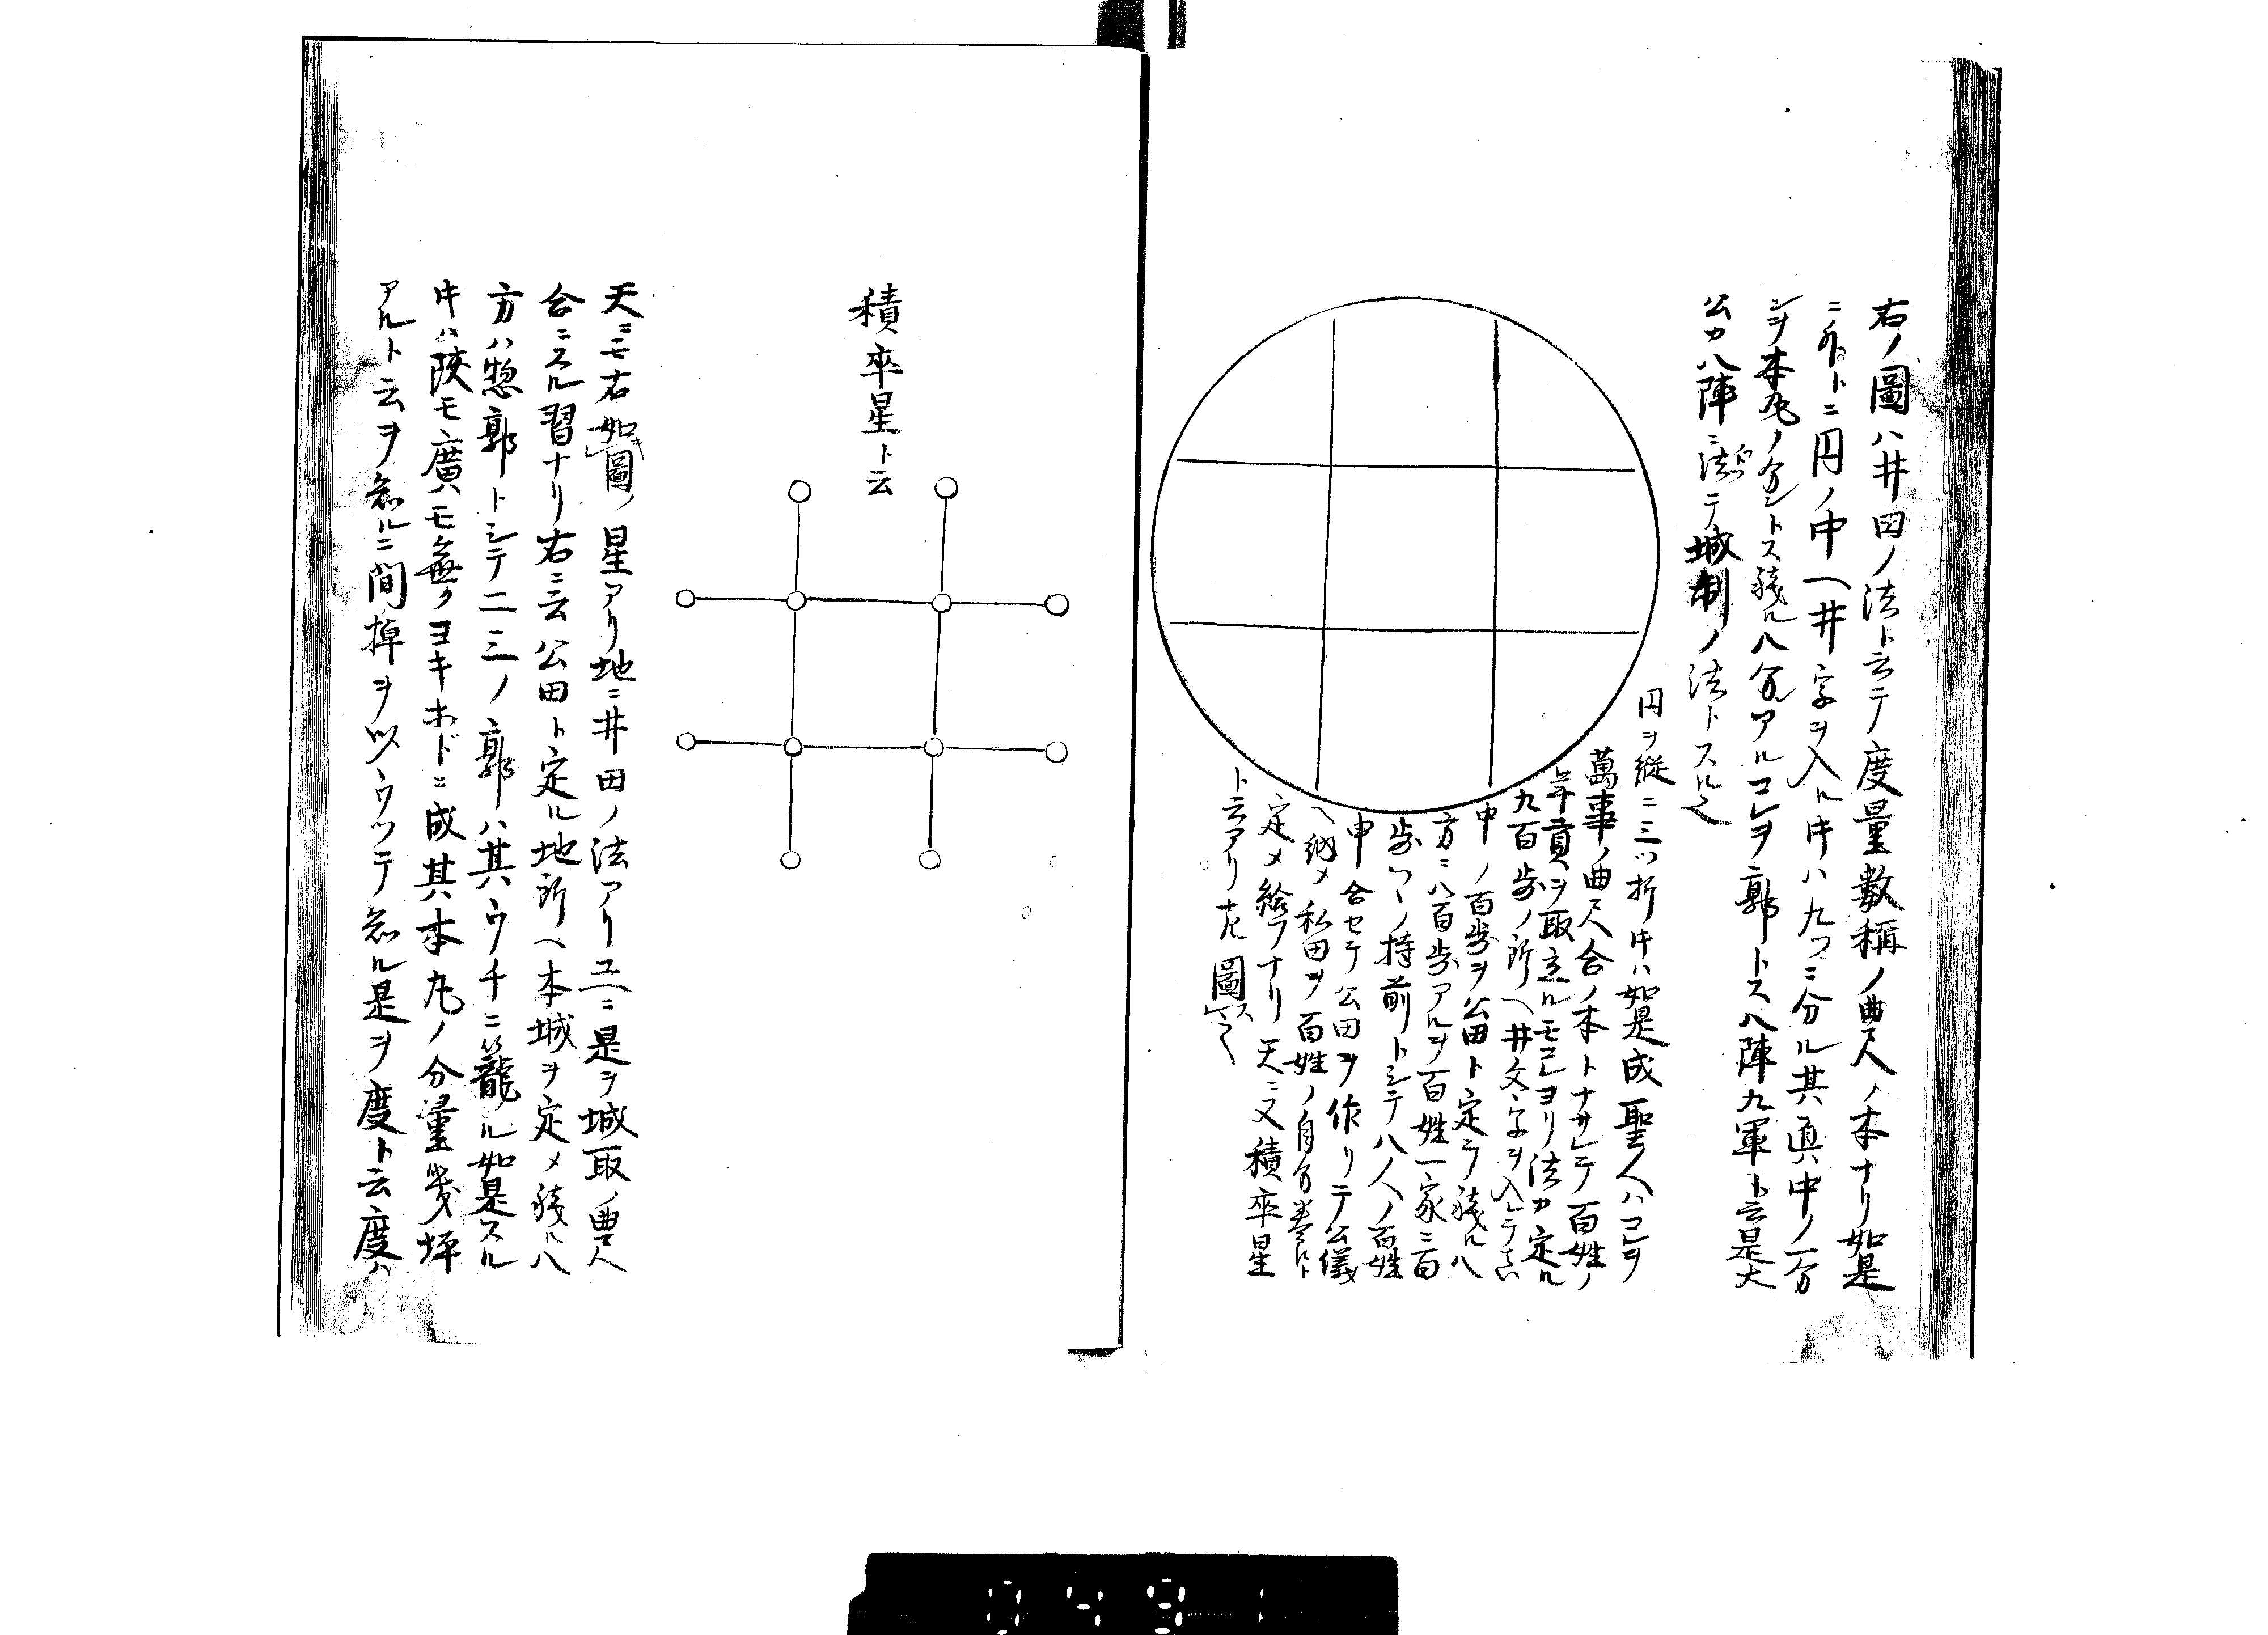 右ノ圖ハ井田ノ法ト云テ度量數稱ノ曲尺ノ本ナリ如是
ニ外ト二円ノ中ヘ井字ヲ入ル井ハ九ツニ分ル其真中ノ一分
ヲ本丸ノ分トス残ル八分アルコレヲ郭トス八陣九軍ト云是太
公カ八陣ニ法テ城制ノ法トスル也
円ヲ縦ニ三ツ折井ハ如是成聖人ハコレヲ
萬事ノ曲尺合ノ本トナサレテ百姓ノ
年貢ヲ取立ルモコレヨリ法カ定ル
九百歩ノ所ヘ井文字ヲ入レテ真
中ノ百歩ヲ公田ト定テ残ル八
方ニ八百歩アルヲ百姓一家ニ百
歩ツヽノ持前トシテ八人ノ百姓
申合セテ公田ヲ作リテ公儀
ヘ納メ私田ヲ百姓ノ自分
定メ給フナリ天ニ又積卒星
ト云アリ左圖ス
積卒星ト云
天ニモ右如圖ノ星アリ地ニ井田ノ法アリユヘニ是ヲ城取ノ曲尺
合ニスル習ナリ右ニ云公田ト定ル地所ヘ本城ヲ定メ残ル八
方ハ惣郭トシテ二三ノ郭ハ其ウチニ籠ル如是スル
井ハ陜モ廣モ無クヨキホドニ成其本丸ノ分量幾坪
アルト云ヲ知ルニ間棹ヲ以ウツテ知ル是ヲ度ト云度ハ